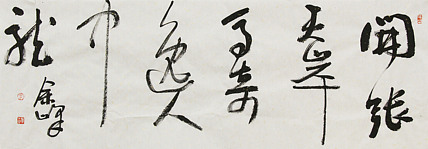 開張
天岸
馬奇
逸人
中
龍
余峰